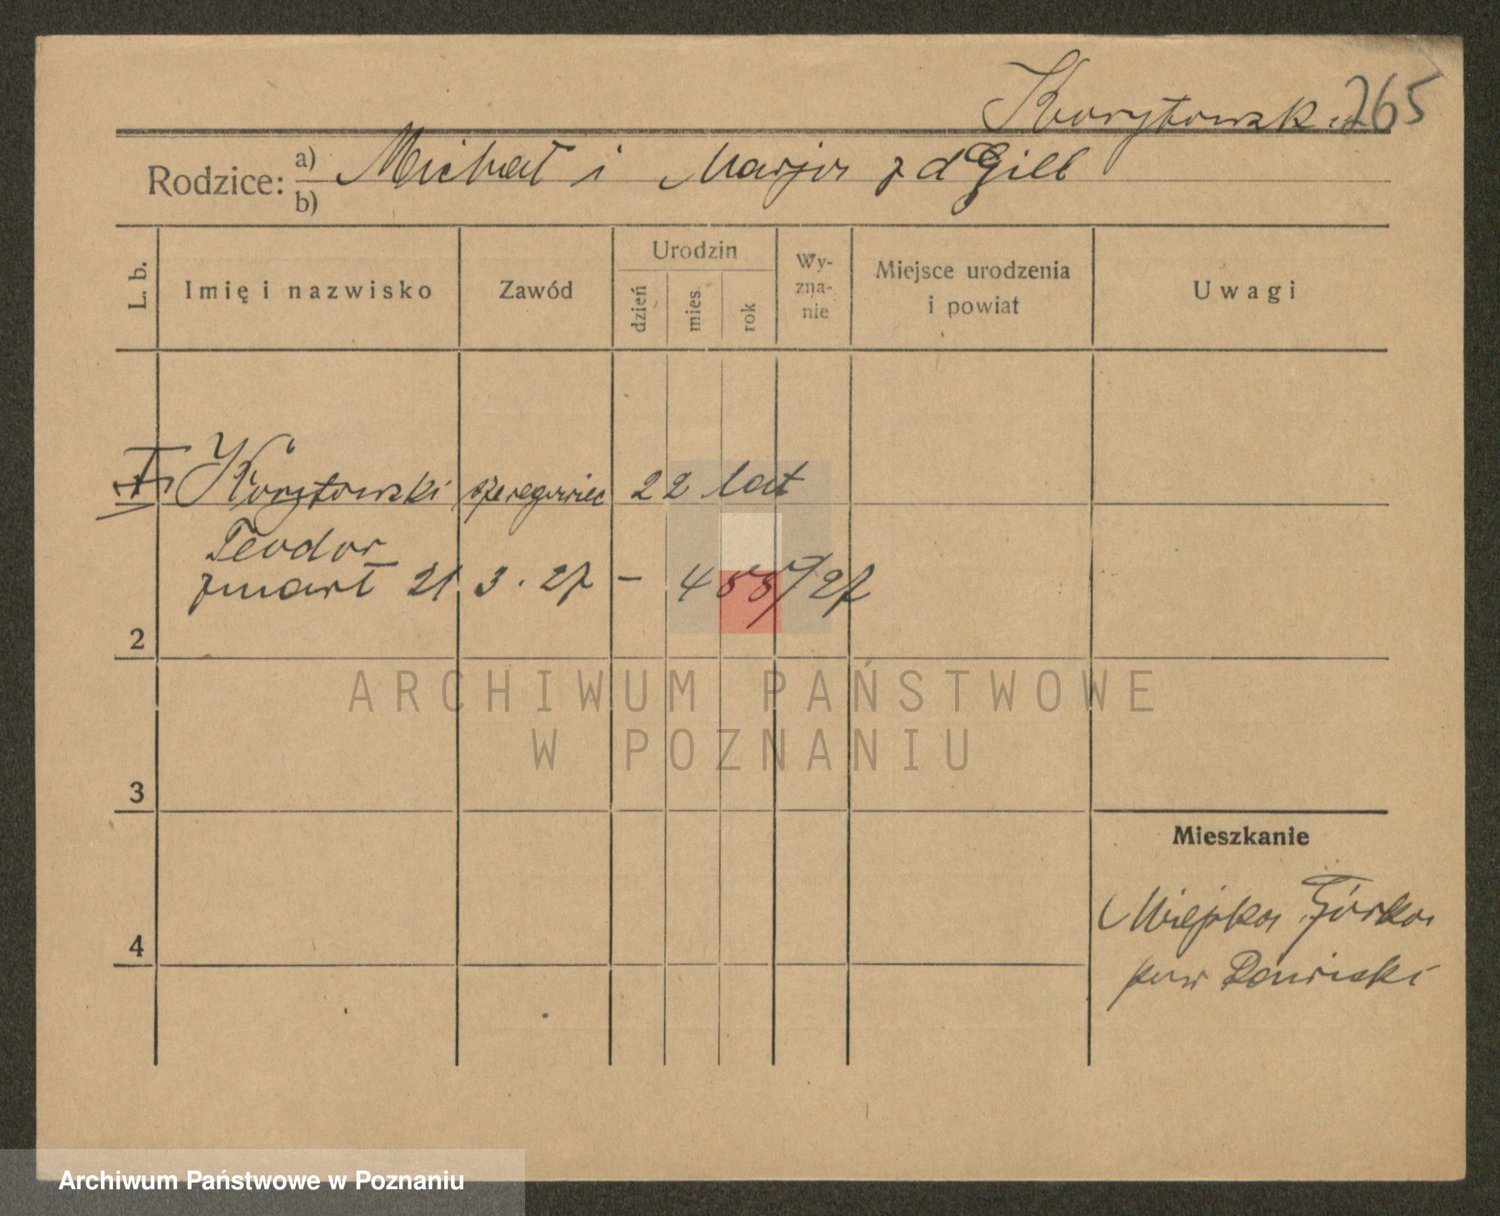 Korytowski 265
Rodzice: a) Michał i Marja z d Gill
b)
L. b.
Imię i nazwisko
Zawód
Urodzin
dzień
mies.
rok
Wy-
zna-
nie
Miejsce urodzenia
i powiat
Uwagi
Korytowski szeregowiec 22 lat
Teodor
zmarł 21.3.27 – 455/27
2
3
4
Mieszkanie
Miejska Górka
pow Rawicki
ARCHIWUM PAŃSTWOWE
W POZNANIU
Archiwum Państwowe w Poznaniu